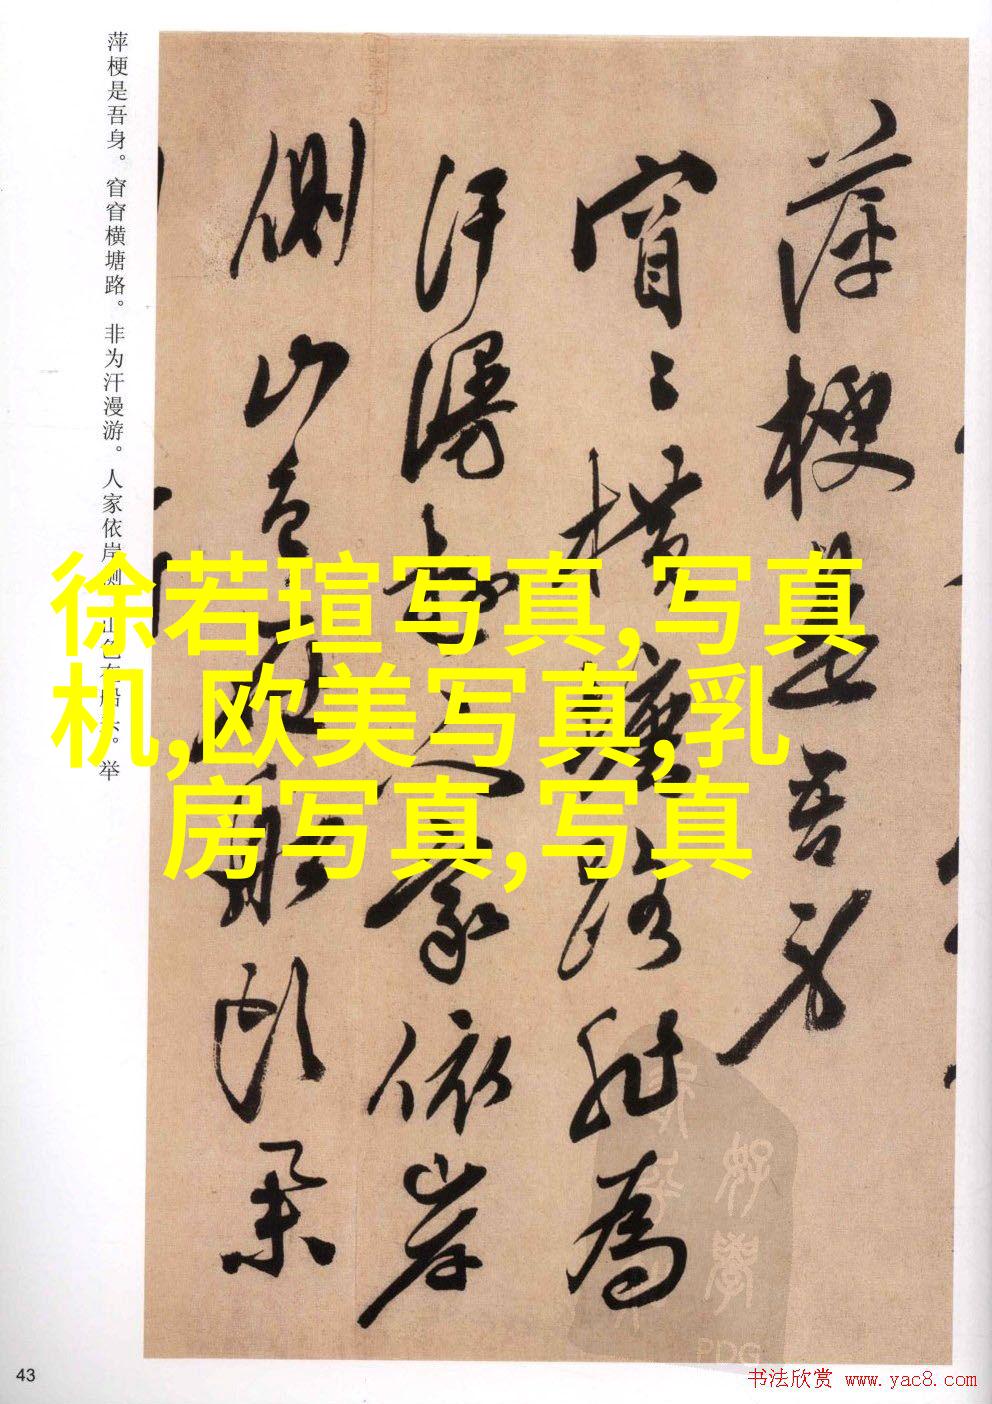 萍梗是吾身。窅窅横塘路。非为汗漫游。人家依岸侧。山色在船头。举
萍梗是吾身
窅〻横塘路非為
汗漫遊人家依岸
側山色在船頭
徐若瑄写真,写真
机,欧美写真,乳
房写真,写真
PDG
43
书法欣赏 www.yac8.com